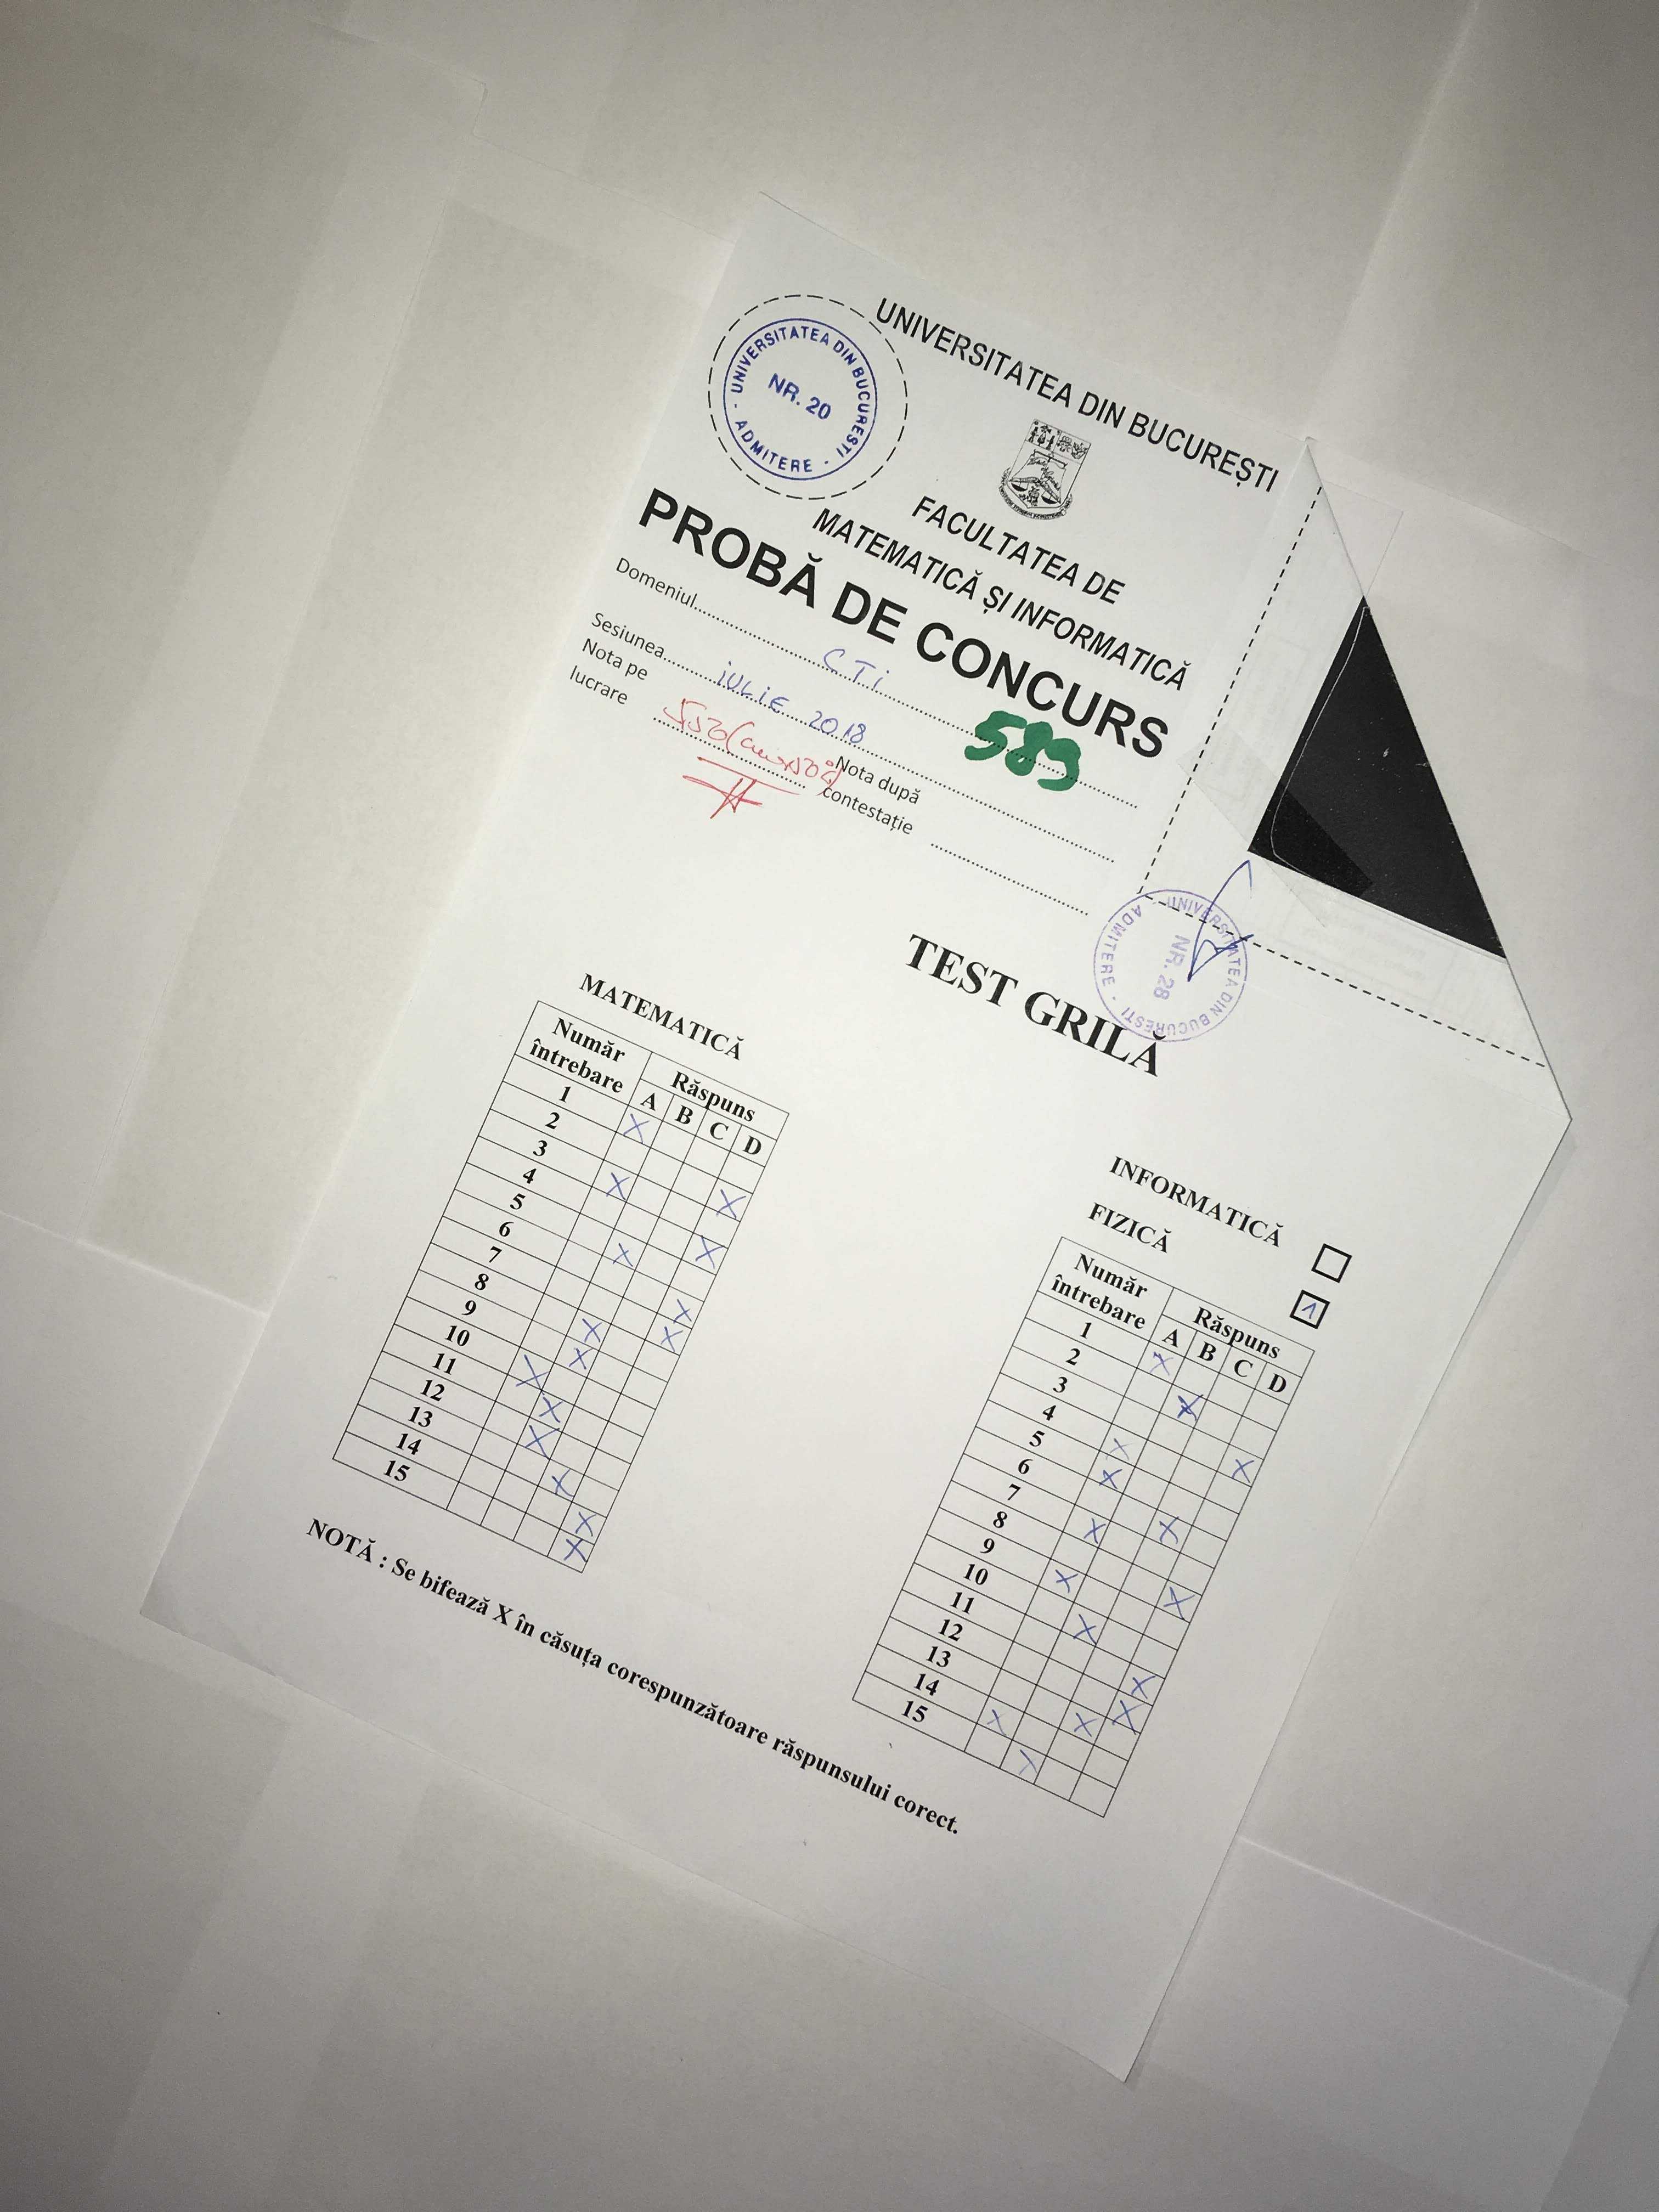 UNIVERSITATEA DIN BUCUREȘTI
UNIVERSITATEA DIN BUCUREȘTI - ADMITERE -
NR. 20
FACULTATEA DE
MATEMATICĂ ȘI INFORMATICĂ
PROBĂ DE CONCURS
Domeniul CTi
589
Sesiunea iULiE 2018
Nota pe lucrare 5,50
Nota după contestație
UNIVERSITATEA DIN BUCUREȘTI - ADMITERE -
NR. 28
TEST GRILĂ
MATEMATICĂ
Număr întrebare Răspuns
A B C D
1 X
2
3
4
5
6
7
8
9
10
11
12
13
14
15
INFORMATICĂ
FIZICĂ 1
Număr întrebare Răspuns
A B C D
1 X
2
3
4
5
6
7
8
9
10
11
12
13
14
15
NOTĂ : Se bifează X în căsuța corespunzătoare răspunsului corect.